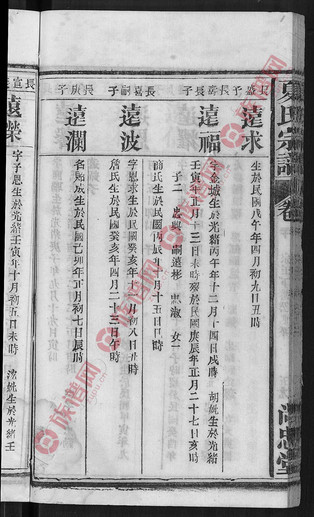 夏氏宗譜
卷
長盛子
遠求
生於民國八午年四月初九日丑時
長 子
遠福
字金城生於光緒丙午年十二月十四日戌時 胡妣生於光緒
壬寅年正月十三日未時歿於民國庚辰年正月二十七日亥時
子二 忠 嗣遠彬 忠淑 女一
長嘉嗣子
遠波
字恩求生於民國癸亥年十月初八日丑時
詹氏生於民國癸亥年四月二十三日午時
長庚子
遠瀾
名 成生於民國己卯年正月初七日辰時
長宣
遠榮
字子恩生於光緒壬寅年十月初五日未時 沈妣生於光緒壬
族谱网